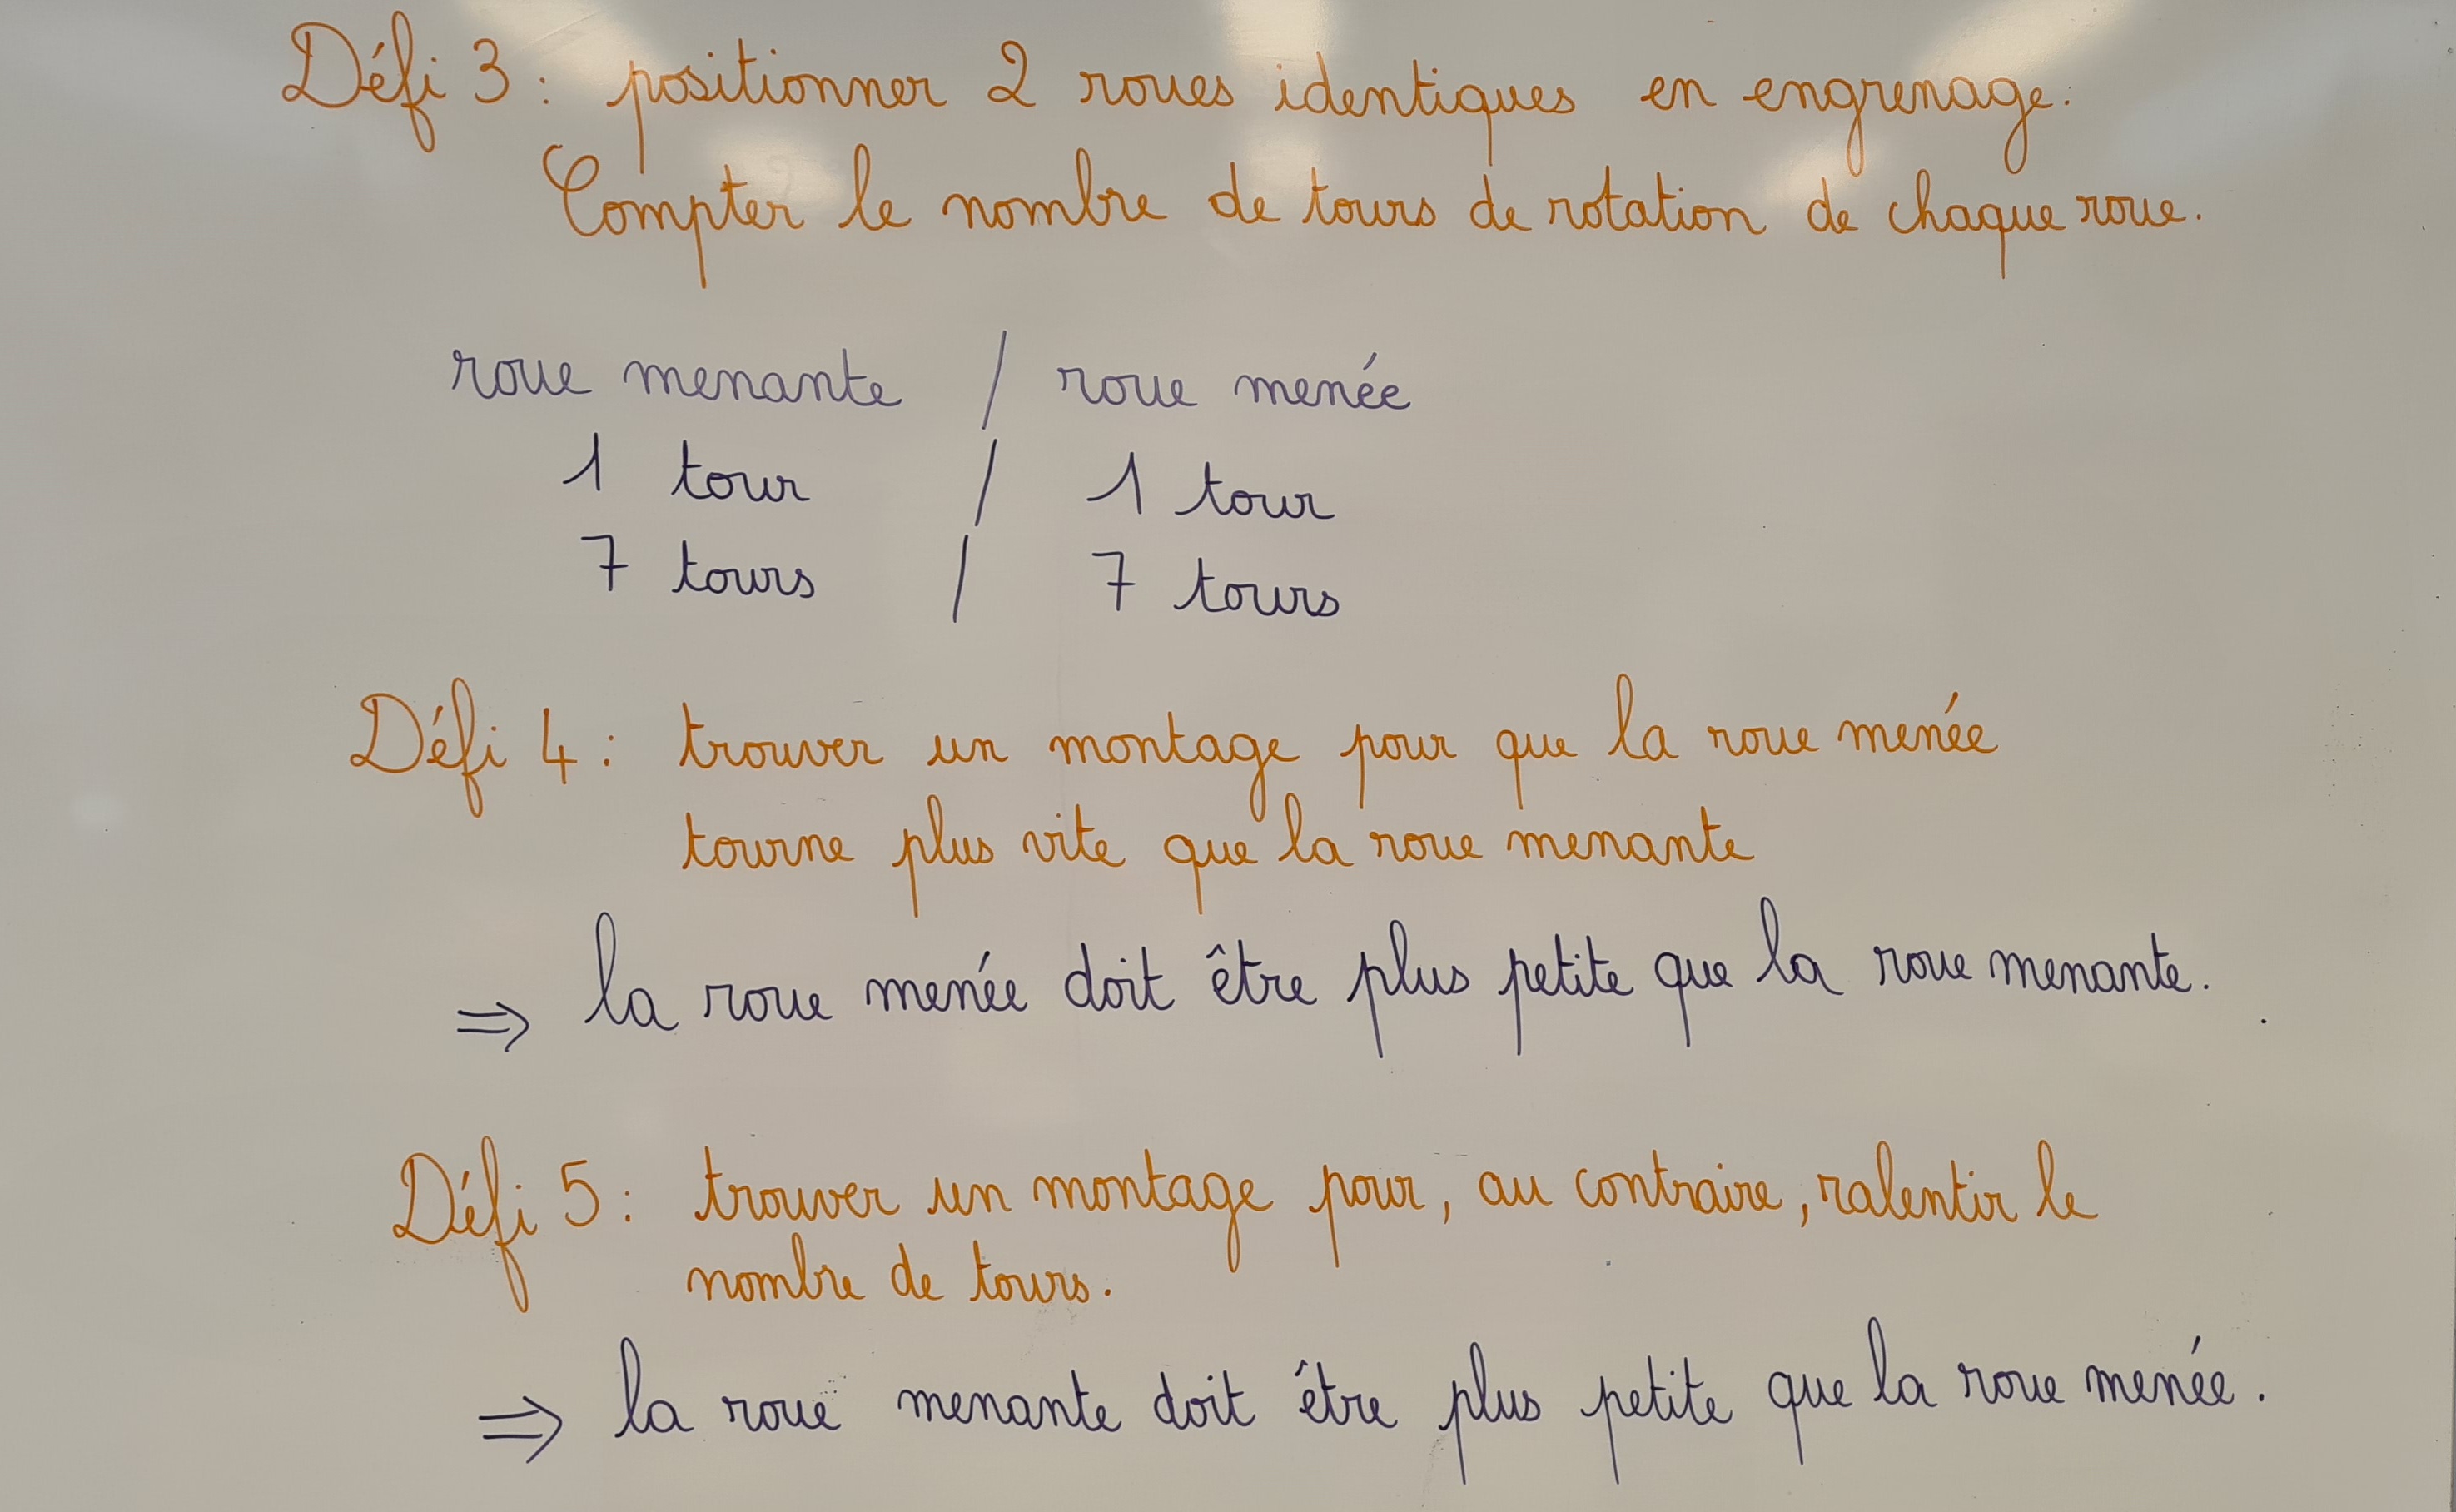 Défi 3 : positionner 2 roues identiques en engrenage.
Compter le nombre de tours de rotation de chaque roue.
roue menante / roue menée
1 tour / 1 tour
7 tours / 7 tours
Défi 4 : trouver un montage pour que la roue menée
tourne plus vite que la roue menante
⇒ la roue menée doit être plus petite que la roue menante.
Défi 5 : trouver un montage pour, au contraire, ralentir le
nombre de tours.
⇒ la roue menante doit être plus petite que la roue menée.